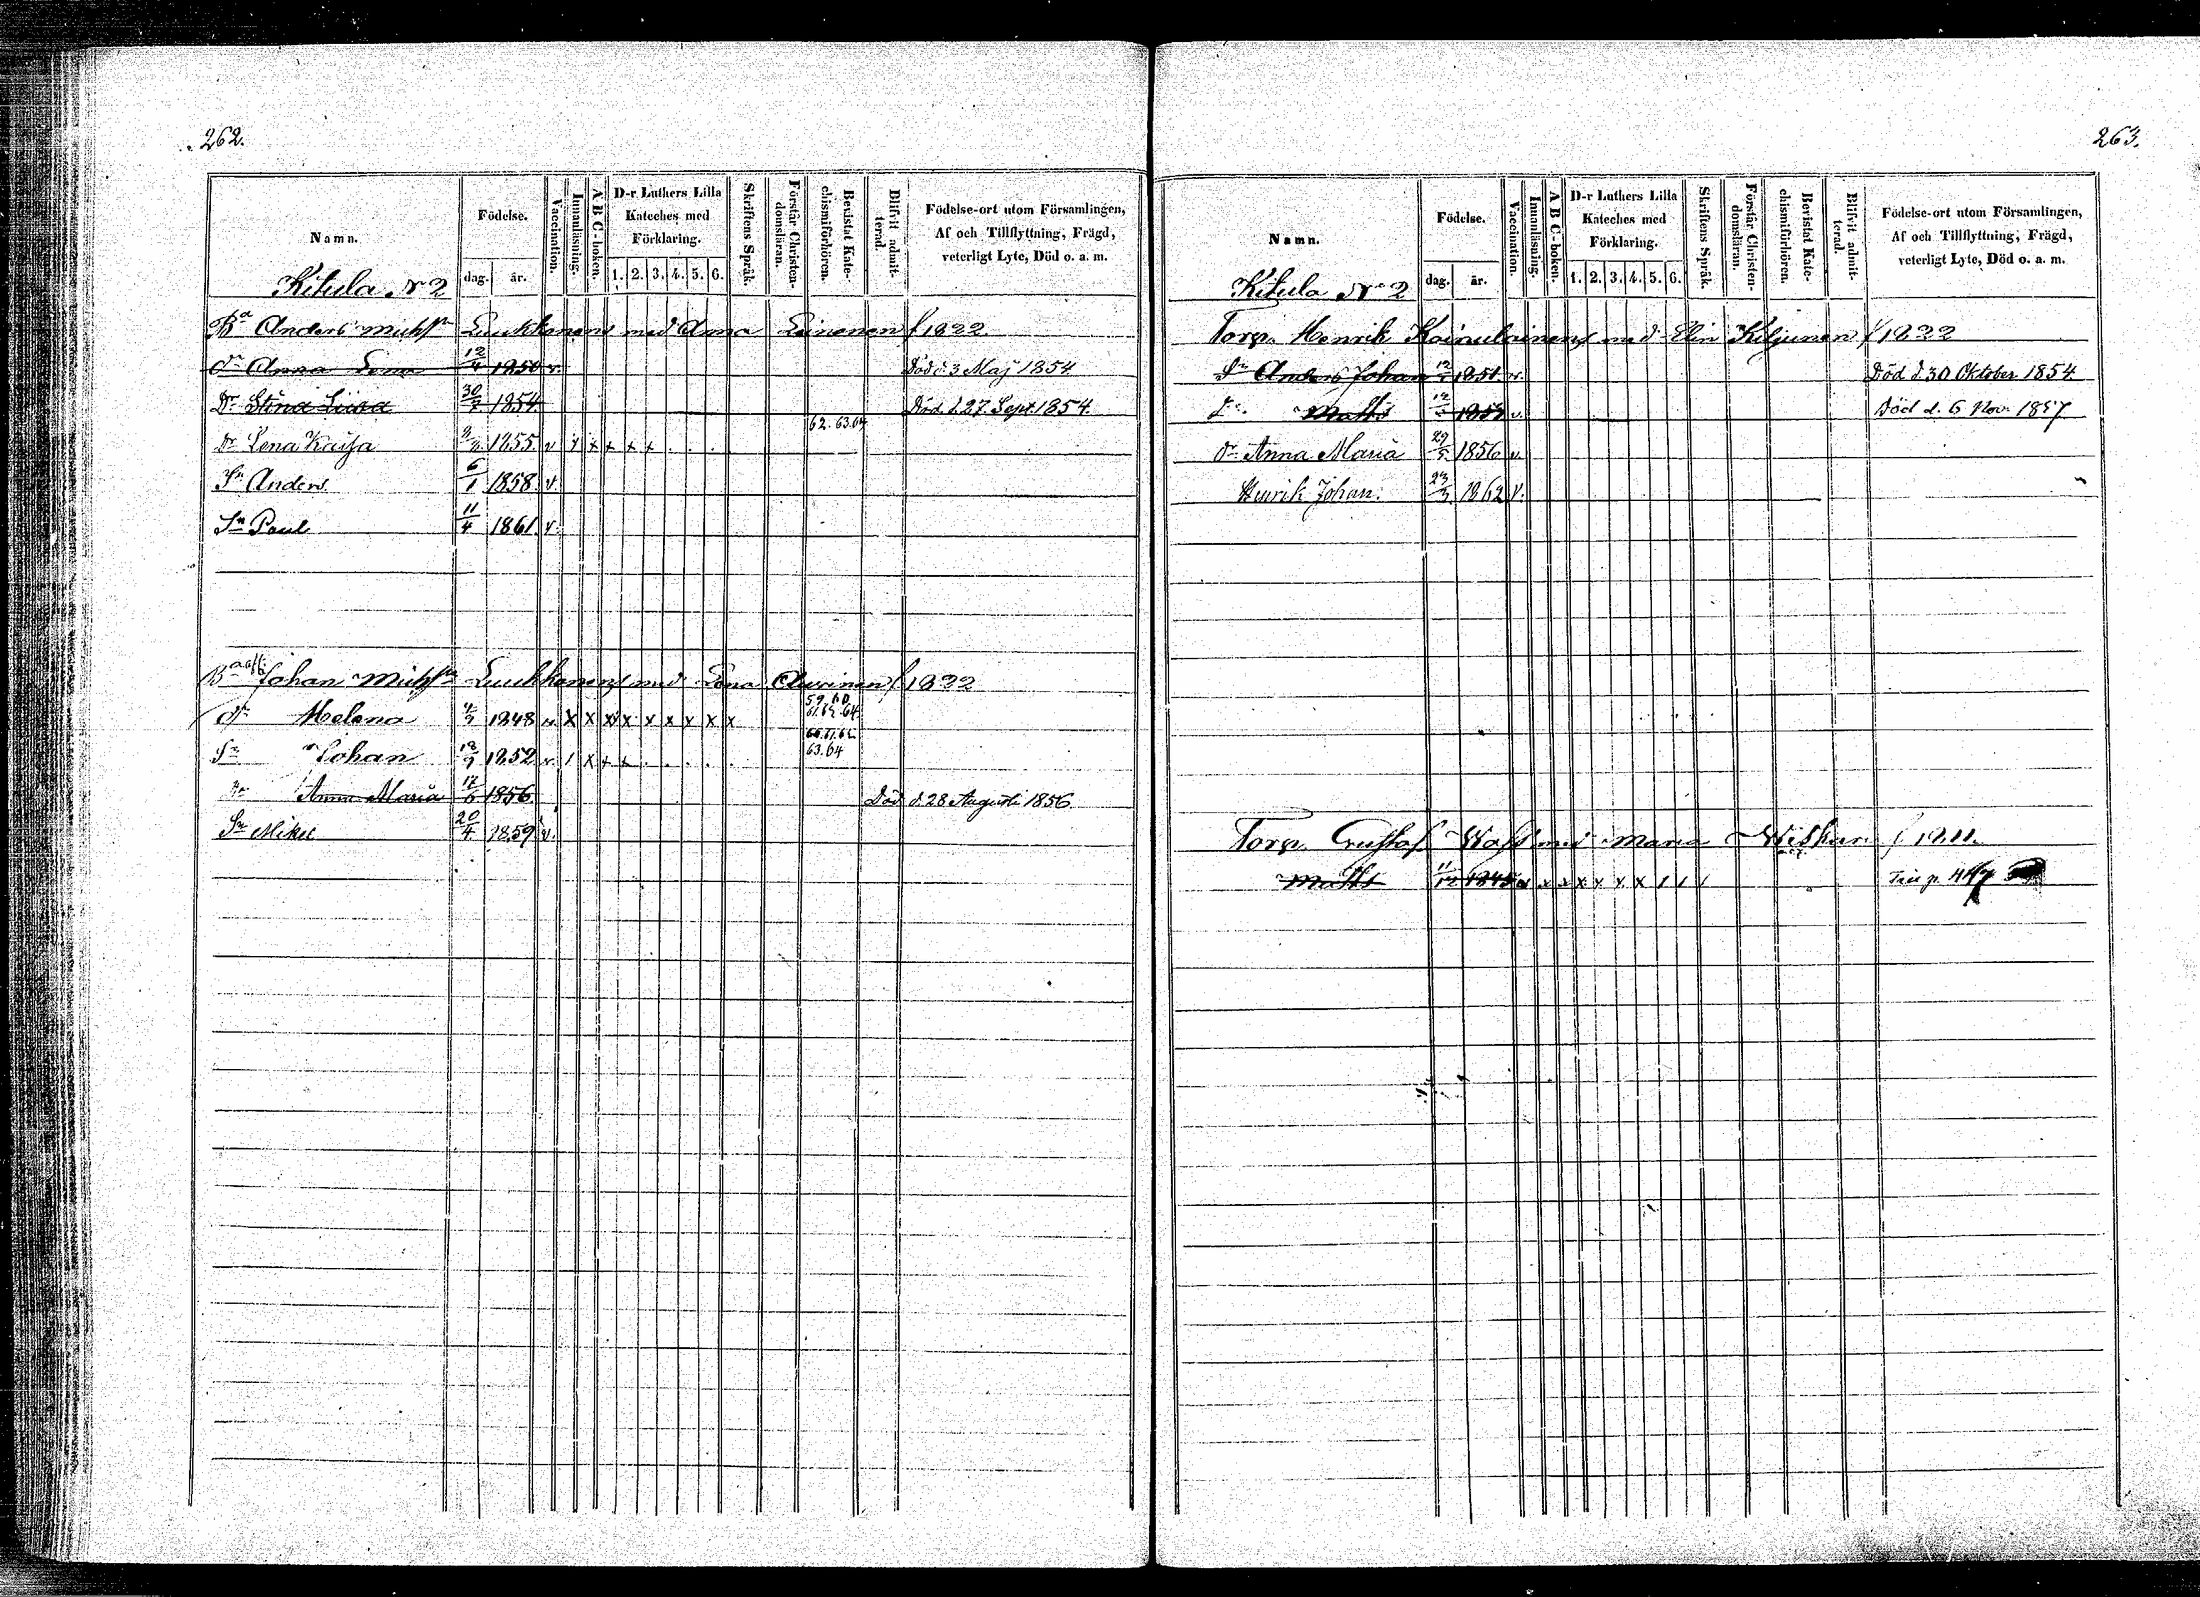 262.
Namn.
Födelse.
dag. år.
Vaccination.
Innanläsning.
A B C-boken.
D-r Luthers Lilla Kateches med Förklaring.
1. 2. 3. 4. 5. 6.
Skriftens Språk.
Förstår Christendomsläran.
Bevistat Katechismiförhören.
Blifvit admitterad.
Födelse-ort utom Församlingen, Af och Tillflyttning, Frägd, veterligt Lyte, Död o. a. m.
Kitula No 2
Ba Anders Michss Luukkonens med Anna Leinonen f 1822
Dr Anna Lena 12/4 1850 v. Död d. 3 Maj 1854
Dr Stina Liisa 30/7 1854 Död d. 27 Sept 1854.
62. 63. 64
Dr Lena Kaisa 1855. v / x x x x . . .
Sn Anders. 6/1 1858. v.
Sn Paul 11/4 1861. v.
Johan Michss Luukkonens med Lena Auvinen f 1822
59. 60. 61. 62. 64.
Dr Helena 4/3 1848 v. x x x x x x x x x
63. 64
Sn Johan 1852 v. / x x x . . . . .
Dr Anna Maria 17/6 1856. Död d. 28 Augusti 1856
Sn Mikel 20/4 1859 v.
263.
Namn.
Födelse.
dag. år.
Vaccination.
Innanläsning.
A B C-boken.
D-r Luthers Lilla Kateches med Förklaring.
1. 2. 3. 4. 5. 6.
Skriftens Språk.
Förstår Christendomsläran.
Bevistat Katechismiförhören.
Blifvit admitterad.
Födelse-ort utom Församlingen, Af och Tillflyttning, Frägd, veterligt Lyte, Död o. a. m.
Kitula No 2
Torp. Henrik Kainulainens med Elin Kiljunen f 1822
Sn Anders Johan 1851. v. Död d. 30 Oktober 1854
Matts 1853 v. Död d. 6 Nov. 1857
Dr Anna Maria 29/5 1856 v.
Henrik Johan. 23/3 1862 v.
Torp. Gustaf med Maria f 1811.
Matts 11/12 1845 x x x x x x x / / /